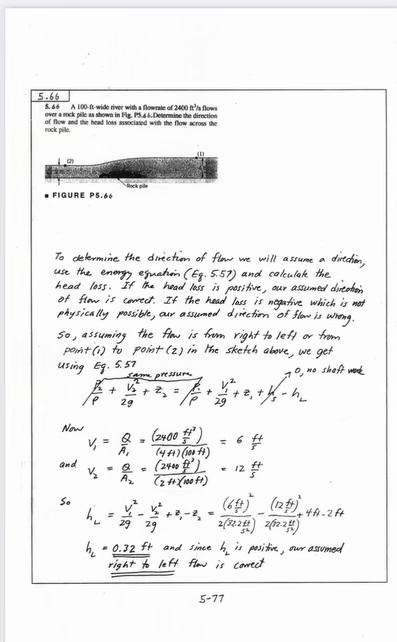 5.66
5.66 A 100-ft-wide river with a flowrate of 2400 ft³/s flows
over a rock pile as shown in Fig. P5.66. Determine the direction
of flow and the head loss associated with the flow across the
rock pile.
(2) (1)
Rock pile
■ FIGURE P5.66
To determine the direction of flow we will assume a direction,
use the energy equation (Eq. 5.57) and calculate the
head loss. If the head loss is positive, our assumed direction
of flow is correct. If the head loss is negative which is not
physically possible, our assumed direction of flow is wrong.
So, assuming the flow is from right to left or from
point (1) to point (2) in the sketch above, we get
using Eq. 5.57
same pressure 0, no shaft work
P₂/ρ + V₂²/2g + z₂ = P₁/ρ + V₁²/2g + z₁ + hₛ - h_L
Now
V₁ = Q/A₁ = (2400 ft³/s)/((4 ft)(100 ft)) = 6 ft/s
and
V₂ = Q/A₂ = (2400 ft³/s)/((2 ft)(100 ft)) = 12 ft/s
So
h_L = V₁²/2g - V₂²/2g + z₁ - z₂ = (6 ft/s)²/(2(32.2 ft/s²)) - (12 ft/s)²/(2(32.2 ft/s²)) + 4 ft - 2 ft
h_L = 0.32 ft and since h_L is positive, our assumed
right to left flow is correct
5-77